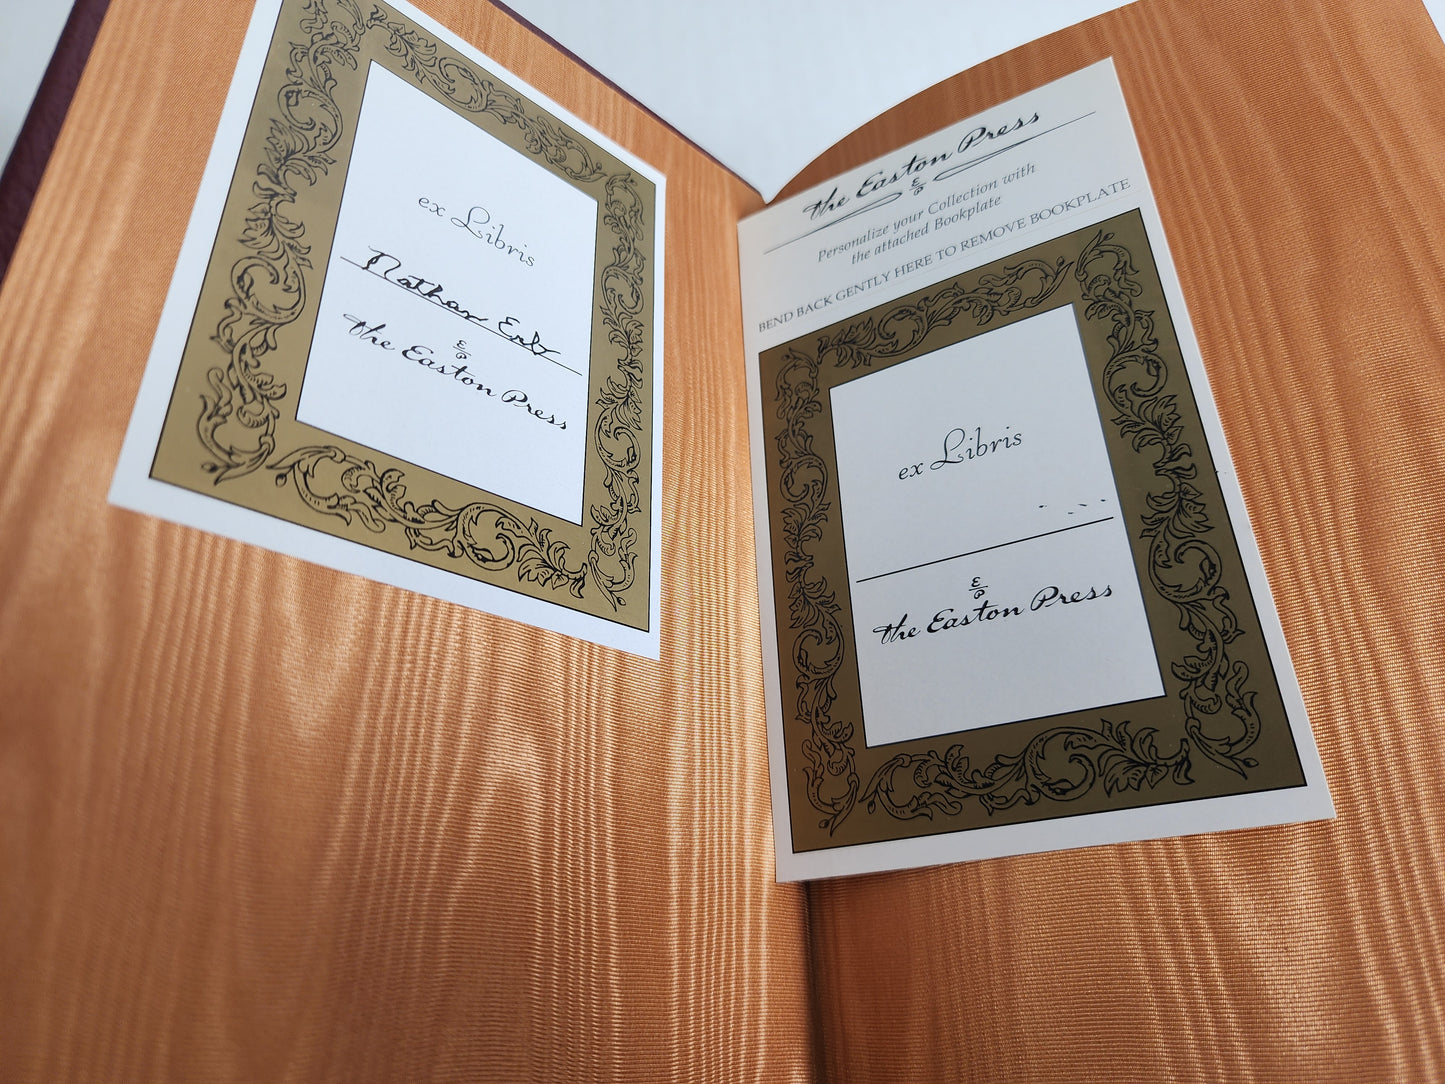 ex Libris
Nathan
E
P
the Easton Press
the Easton Press
E
P
Personalize your Collection with
the attached Bookplate
BEND BACK GENTLY HERE TO REMOVE BOOKPLATE
ex Libris
E
P
the Easton Press